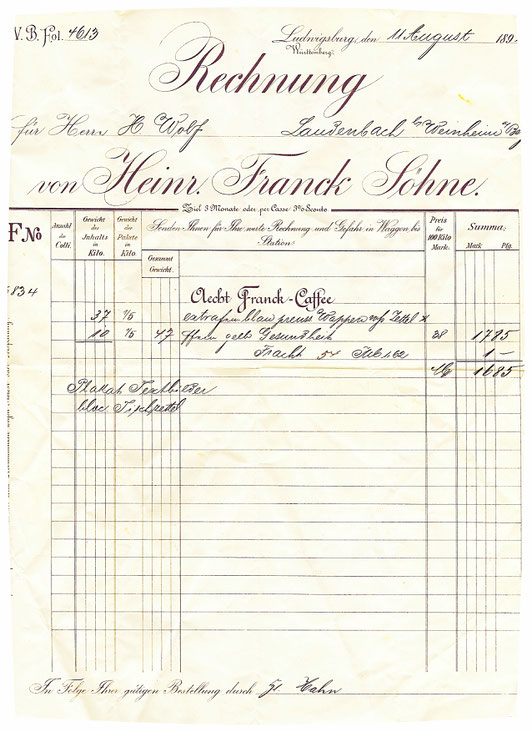 V. B. Fol. 4613
Ludwigsburg, den 11 August 189
Württemberg.
Rechnung
für Herrn H Wolf Laudenbach b/Weinheim
von Heinr. Franck Söhne.
Ziel 3 Monate oder per Cassa 3% Sconto
F.No
Anzahl der Colli.
Gewicht des Inhalts in Kilo.
Gewicht der Pakete in Kilo.
Senden Ihnen für Ihre werte Rechnung und Gefahr in Waggon bis Station
Gesammt Gewicht.
Preis für 100 Kilo Mark.
Summa:
Mark Pfg.
834
Aecht Franck-Caffee
37 1/5 extrafein blau preuss Wappen Zettel
10 1/5 47 ffein gelb Gesundheit 38 1785
Fracht 54 1 —
1685
Plakat Textbilder
In Folge Ihrer gütigen Bestellung durch Hr Hahn